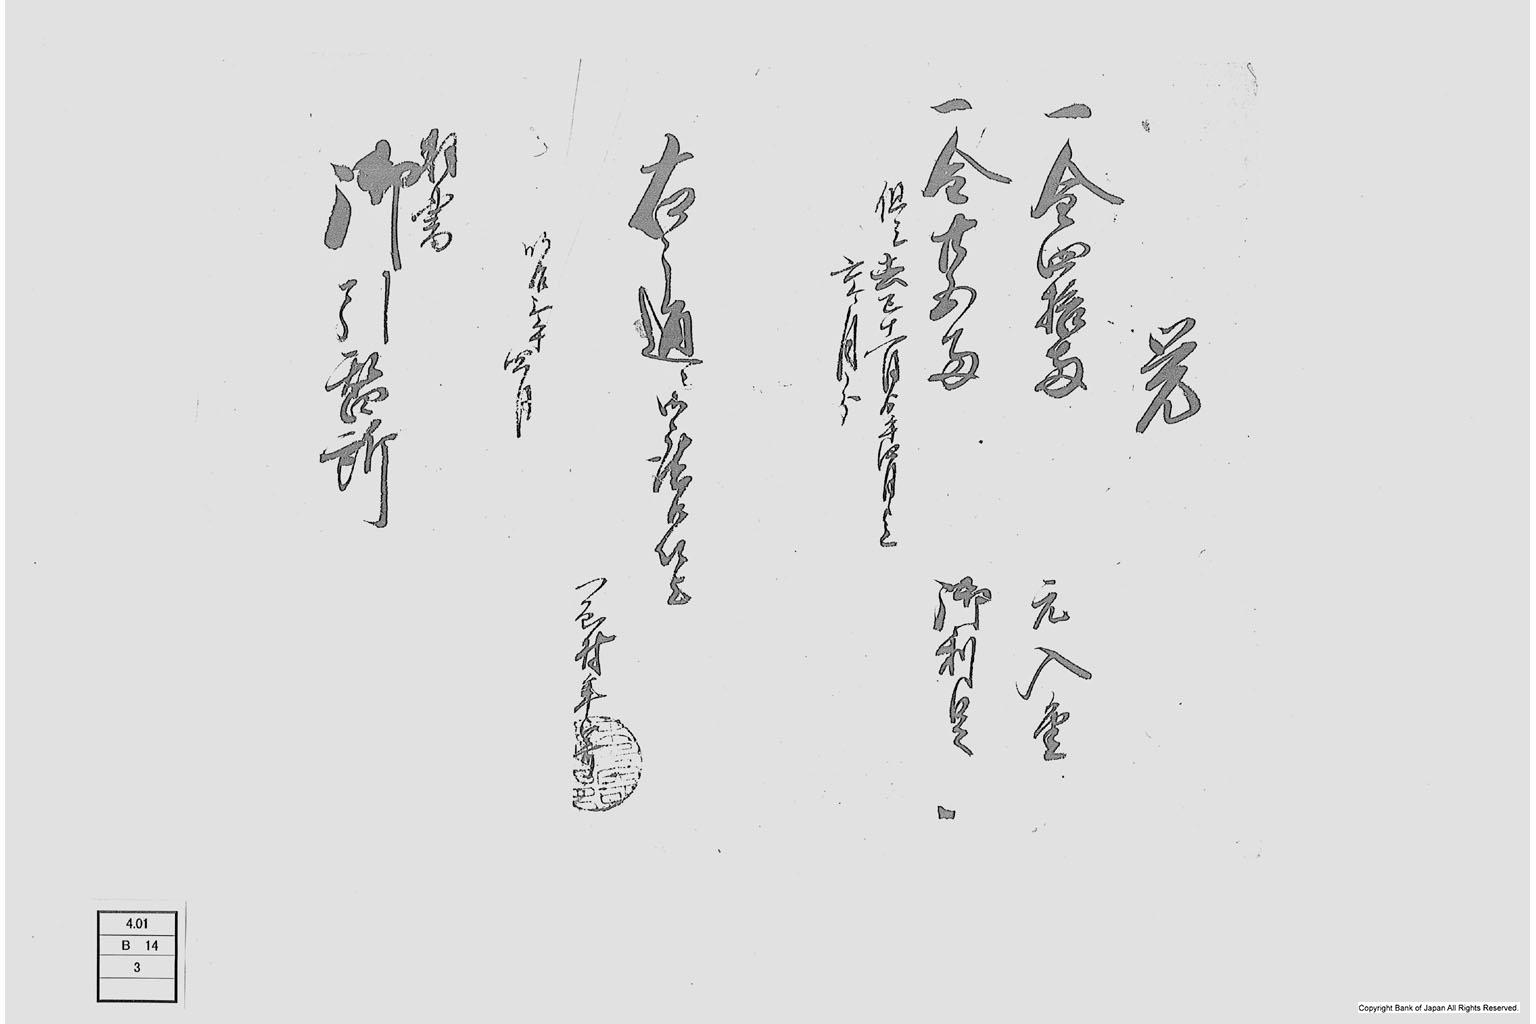 覚
一金四拾両
元入金
一金廿五両
御利足
但シ去巳十一月ゟ午四月迄
六ヶ月分
右之通
明治三年
四月
一色村年寄
羽書
御引替所
4.01
B 14
3
Copyright Bank of Japan All Rights Reserved.